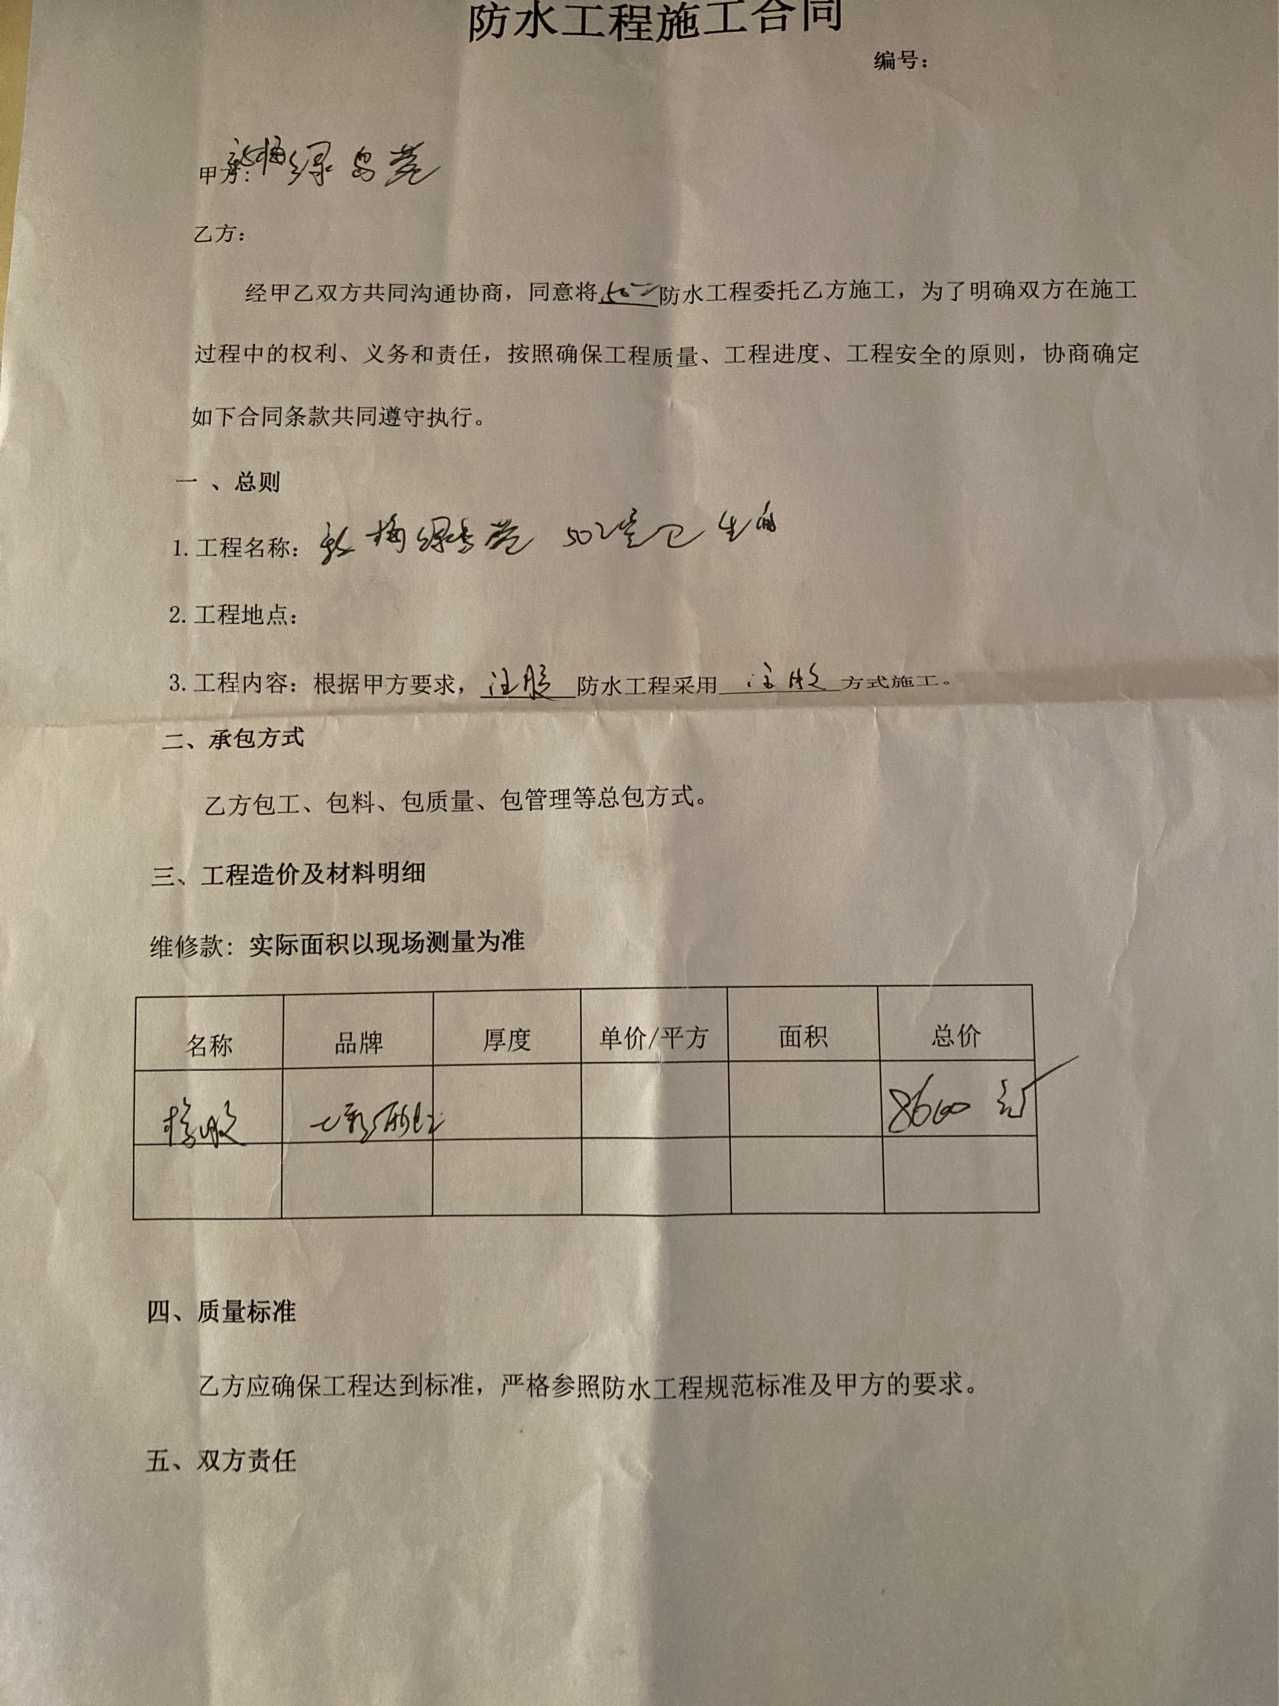 防水工程施工合同
编号：
甲方：新梅绿岛苑
乙方：
经甲乙双方共同沟通协商，同意将502防水工程委托乙方施工，为了明确双方在施工
过程中的权利、义务和责任，按照确保工程质量、工程进度、工程安全的原则，协商确定
如下合同条款共同遵守执行。
一 、总则
1.工程名称：新梅绿岛苑 502室卫生间
2.工程地点：
3.工程内容：根据甲方要求，注胶防水工程采用 注胶 方式施工。
二、承包方式
乙方包工、包料、包质量、包管理等总包方式。
三、工程造价及材料明细
维修款：实际面积以现场测量为准
名称 品牌 厚度 单价/平方 面积 总价
橡胶 8600元
四、质量标准
乙方应确保工程达到标准，严格参照防水工程规范标准及甲方的要求。
五、双方责任